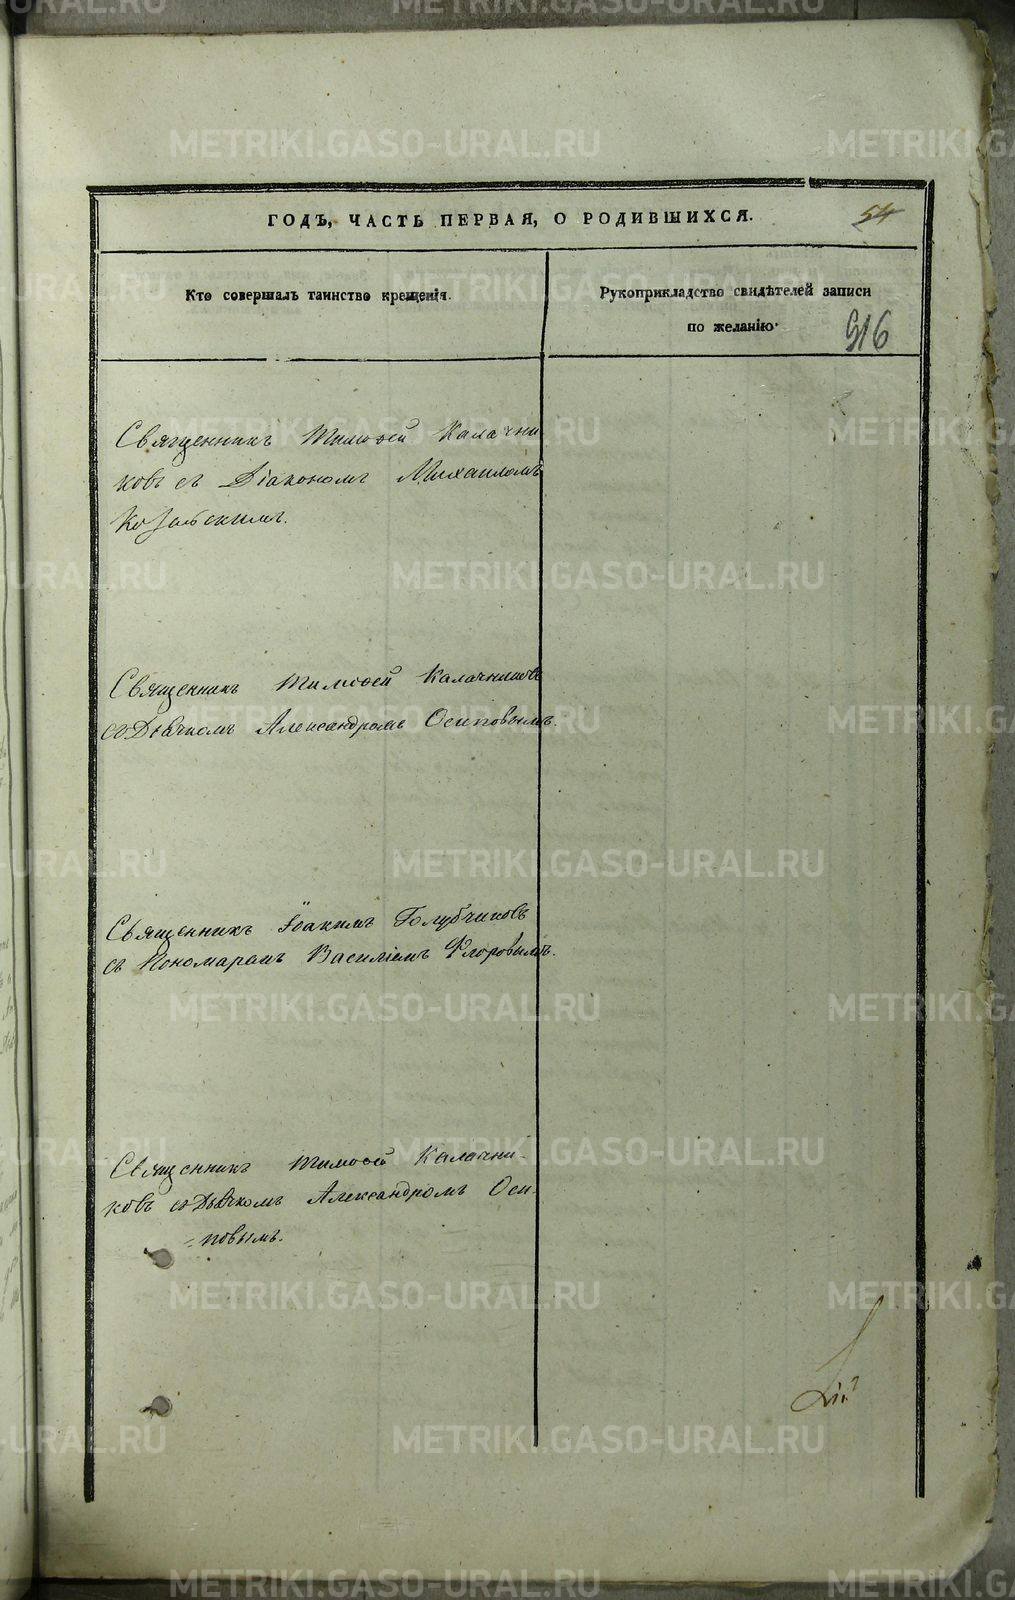 ГОДЪ, ЧАСТЬ ПЕРВАЯ, О РОДИВШИХСЯ.
54
Кто совершалъ таинство крещенія.
Рукоприкладство свидѣтелей записи
по желанію.
516
Священникъ Тимоѳей Калачни
ковъ съ Діакономъ Михаиломъ
Козельскимъ.
Священникъ Тимоѳей Калачниковъ
съ Дьячкомъ Александромъ Осиповымъ.
Священникъ Іоакимъ Голубчиковъ
съ Пономаремъ Василіемъ Флоровымъ.
Священникъ Тимоѳей Калачни-
ковъ съ Дьячкомъ Александромъ Оси-
=повымъ.
METRIKI.GASO-URAL.RU